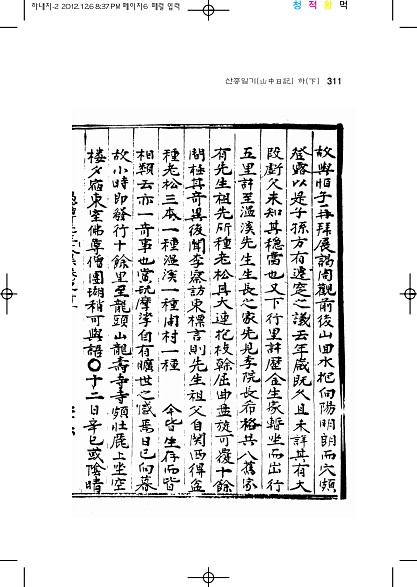 하내지-2 2012.12.6 8:37 PM 페이지6 페렁 입력
청 적 황 먹
산중일기(山中日記) 하(下) 311
故與怕子再拜展謁周觀前後山回水抱向陽明朗而穴頗
登露以是子孫方有遷窆之議云年歲旣久且未詳其有大
段斷久未知其穩當也又下行里許歷金生家暫坐而出行
五里許至溫溪先生生長之家先見李院長布格共入舊家
有先生祖先所種老松其大連抱枝幹屈曲盘旋可覆十餘
間極其奇異後聞李察訪東標言則先生祖父自關西得盆
種老松三本一種溫溪一種周村一種 今皆生存而皆
相類云亦一奇事也嘗玩摩挲自有曠世之感焉日已向暮
故小時卽發行十餘里至龍頭山龍壽寺寺頗壯麗上坐空
樓夕宿東室佛尊僧團瑚稍可與語〇十二日辛巳或陰晴